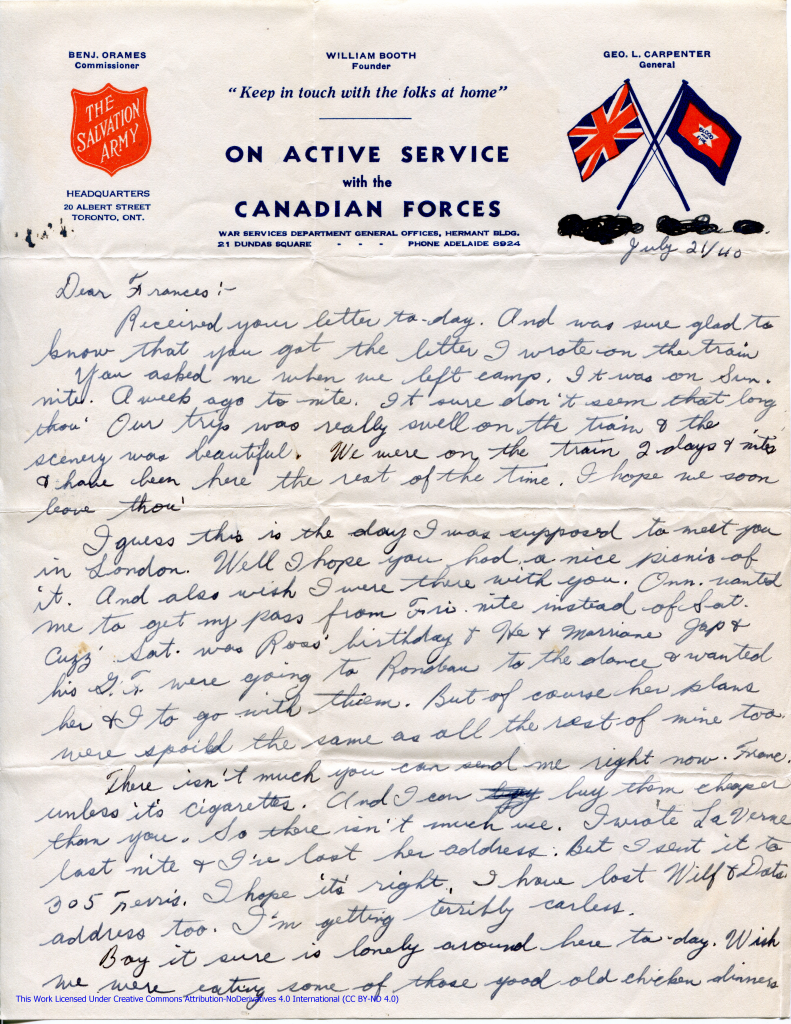 BENJ. ORAMES
Commissioner
WILLIAM BOOTH
Founder
GEO. L. CARPENTER
General
"Keep in touch with the folks at home"
THE
SALVATION
ARMY
BLOOD
ON ACTIVE SERVICE
with the
CANADIAN FORCES
HEADQUARTERS
20 ALBERT STREET
TORONTO, ONT.
WAR SERVICES DEPARTMENT GENERAL OFFICES, HERMANT BLDG.
21 DUNDAS SQUARE - - - PHONE ADELAIDE 8924
July 21/40
Dear Frances:-
Received your letter to-day. And was sure glad to
know that you got the letter I wrote on the train
You asked me when we left camp. It was on Sun.
nite. A week ago to nite. It sure don't seem that long
thou' Our trip was really swell on the train & the
scenery was beautiful. We were on the train 2 days & nites
& have been here the rest of the time. I hope we soon
leave thou'
I guess this is the day I was supposed to meet you
in London. Well I hope you had a nice picnic of
it. And also wish I were there with you. Onn. wanted
me to get my pass from Fri. nite instead of Sat.
Cuzz' Sat. was Ross' birthday & He & Marriane Jap &
his G.F. were going to Rondeau to the dance & wanted
her & I to go with them. But of course her plans
were spoild the same as all the rest of mine too.
There isn't much you can send me right now. Franc.
unless it's cigarettes. And I can buy them cheaper
than you. So there isn't much use. I wrote La Verne
last nite & I've lost her address. But I sent it to
305 Ferris. I hope it's right. I have lost Wilf & Dots
address too. I'm getting terribly carless.
Boy it sure is lonely around here to-day. Wish
we were eating some of those good old chicken dinners
This Work Licensed Under Creative Commons Attribution-NoDerivatives 4.0 International (CC BY-ND 4.0)